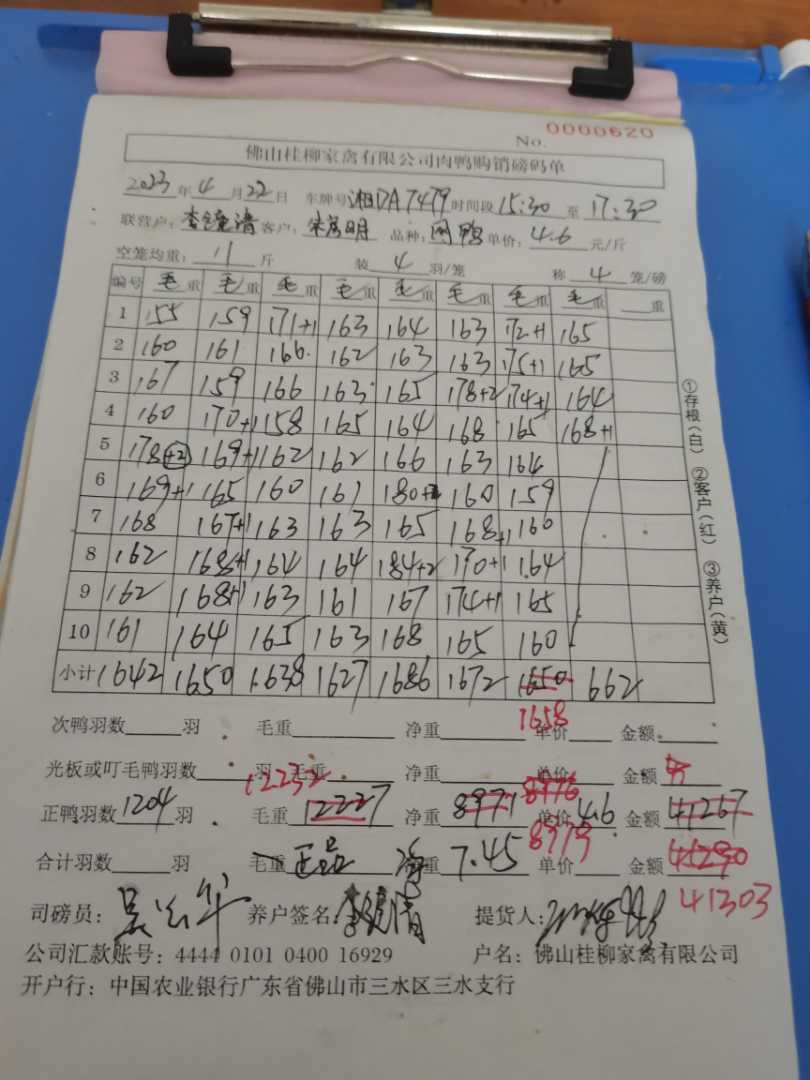 No. 0000620
佛山桂柳家禽有限公司肉鸭购销磅码单
2023年4月22日 车牌号湘DA7479时间段15:30至17:30
联营户: 客户: 品种:网鸭单价:4.6元/斤
空笼均重:11斤 装4羽/笼 称4笼/磅
编号 毛重 毛重 毛重 毛重 毛重 毛重 毛重 毛重 重
1 155 159 171+1 163 164 163 172+1 165
2 160 161 166 162 163 163 175+1 165
3 167 159 166 163 165 178+2 174+1 164
4 160 170+1 158 165 164 168 165 168+1
5 178+2 169+1 162 162 166 163 164
6 169+1 165 160 161 180+2 160 159
7 168 167+1 163 163 165 168+1 160
8 162 168+1 164 164 184+2 170+1 164
9 162 168+1 163 161 167 174+1 165
10 161 164 165 163 168 165 160
小计 1642 1650 1638 1627 1686 1672 1650 662
1658
①存根(白) ②客户(红) ③养户(黄)
次鸭羽数 羽 毛重 净重 单价 金额
光板或叮毛鸭羽数 羽 毛重 净重 单价 金额
12232 8976
正鸭羽数1204羽 毛重12227 净重8971 单价4.6 金额41267
8979
合计羽数 羽 毛重 正品 净重7.45 单价 金额41290
41303
司磅员: 养户签名: 提货人:
公司汇款账号:4444 0101 0400 16929 户名:佛山桂柳家禽有限公司
开户行:中国农业银行广东省佛山市三水区三水支行